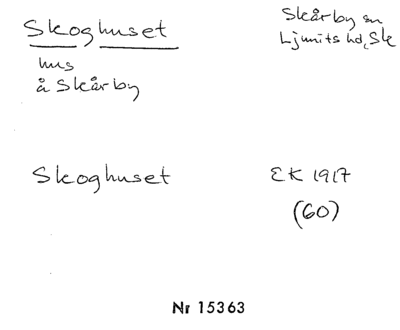 Skoghuset
Skårby sn
Ljunits hd, Sk
hus
å Skårby
Skoghuset
EK 1917
(60)
Nr 15363